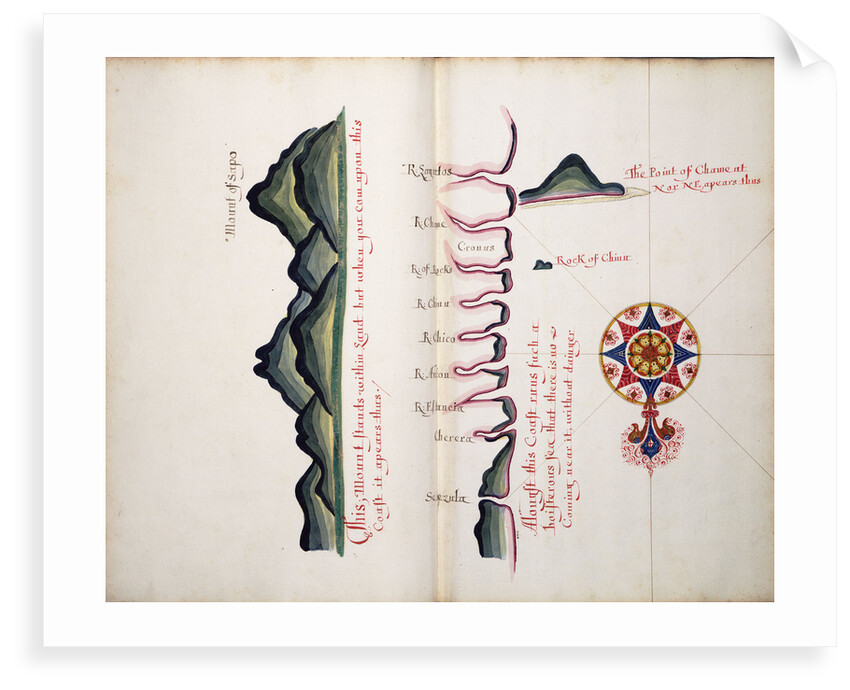 Mount of Sapo
This, Mount stands within Land but when you com upon this
Coast it apears thus
R. Chme
Cronus
R. of Rocks
R. Chun
R. Chico
R. Anon
R. Estuncia
Cherera
Serzula
The Point of Chame at
Nor NE apears thus
Rock of Chiun
Alongst this Coast runs such a
boisterous sea That there is no
Coming near it, without dainger